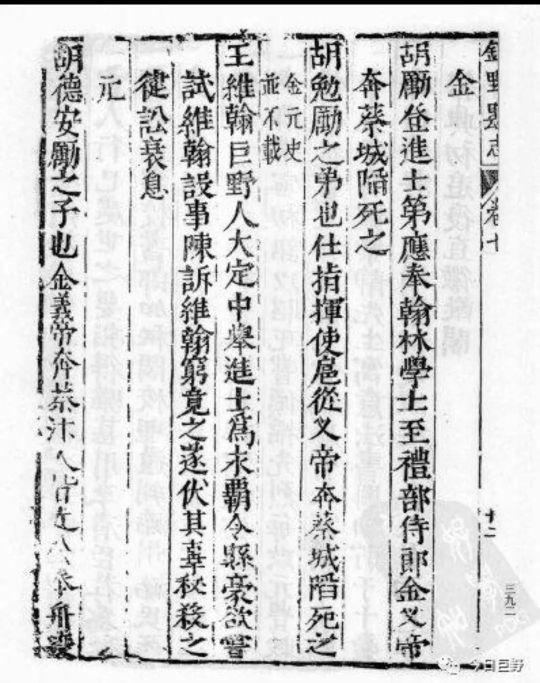 鉅野縣志 卷七 十二 三九二
金
胡勵登進士第應奉翰林學士至禮部侍郎金义帝
奔蔡城陷死之
胡勉勵之弟也仕指揮使扈從义帝奔蔡城陷死之
金元史
並不載
王維翰巨野人大定中舉進士爲永霸令縣豪欲嘗
試維翰設事陳訴維翰窮竟之遂伏其辜杖殺之
健訟衰息
元
胡德安勵之子也金義帝奔蔡汴人皆
今日巨野